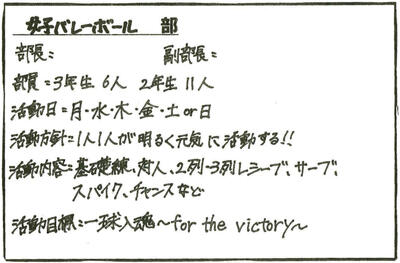 女子バレーボール 部
部長= 副部長=
部員=3年生 6人 2年生 11人
活動日=月・水・木・金・土or日
活動方針=1人1人が明るく元気に活動する!!
活動内容=基礎練、対人、2列-3列レシーブ、サーブ、
スパイク、チャンスなど
活動目標=一球入魂〜for the victory〜